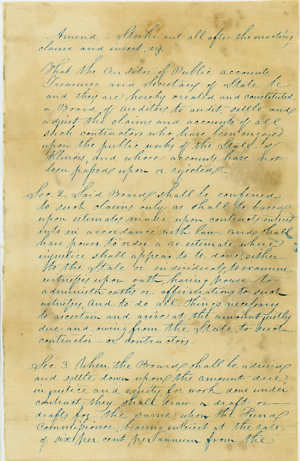 Amend – Strike out all after the enacting
clause and insert,
That the Auditor of Public accounts,
Treasurer and Secretary of State be
and they are hereby created and constituted
a Board of Auditors to audit, settle and
adjust the claims and accounts of all
such contractors who have been engaged
upon the public works of the State of
Illinois, and whose accounts have not
been passed upon or rejected.
Sec. 2. Said Board shall be confined
to such claims only as shall be based
upon estimates made upon contracts entered
into in accordance with law and shall
have power to order a re estimate where
injustice shall appear to be done either
to the State or individuals, to examine
witnesses upon oath, having power to
administer oaths or affirmations to such
witnesses and to do all things necessary
to ascertain and arrive at the amount justly
due and owing from the State to such
contractor or contractors.
Sec. 3 When the Board shall be advised
and settle down upon the amount due
in justice and equity for work done under
contract, they shall draw a draft or
drafts for the same upon the Fund
Commissioner, bearing interest at the rate
of six per cent per annum from the